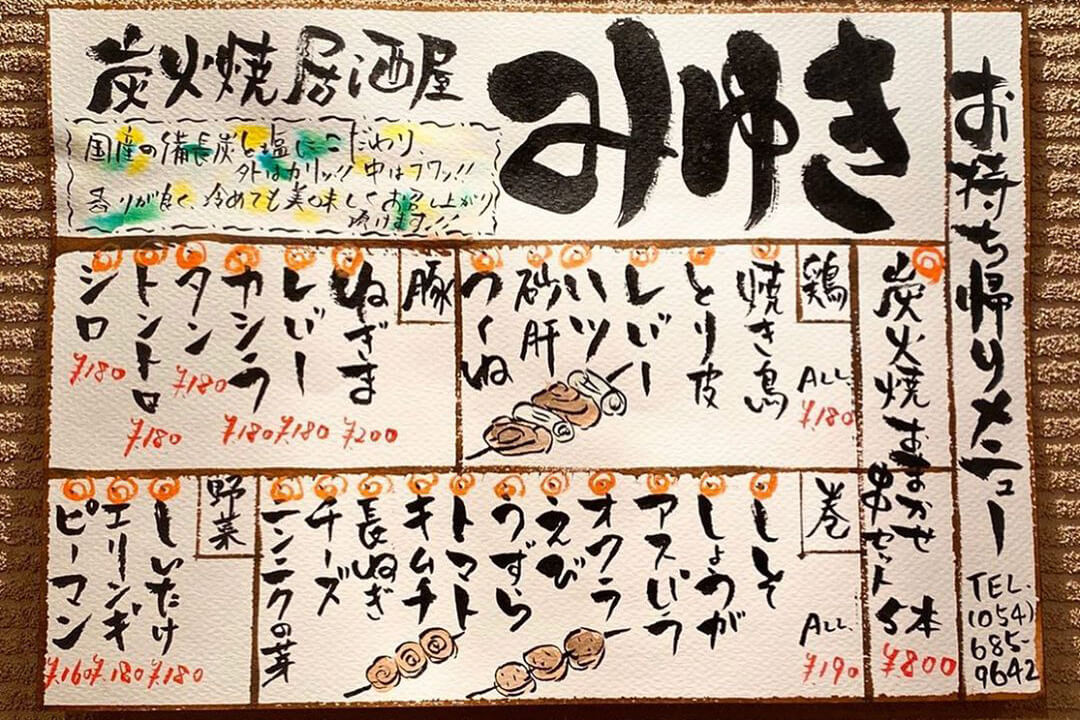 炭火焼居酒屋
みゆき
国産の備長炭と塩にこだわり、
外はカリッ!! 中はフワッ!!
香りが良く、冷めても美味しくお召し上がり
頂けます!!
お持ち帰りメニュー
TEL.
(054)
685-
9642
炭火焼おまかせ
串セット 5本
¥800
鶏
ALL.
¥180
焼き鳥
とり皮
レバー
ハツ
砂肝
つくね
豚
ねぎま
¥200
レバー
¥180
カシラ
¥180
タン
¥180
トントロ
¥180
シロ
¥180
巻
ALL.
¥190
しそ
しょうが
アスパラ
オクラ
えび
うずら
トマト
キムチ
長ねぎ
チーズ
ニンニクの芽
野菜
しいたけ
¥180
エリンギ
¥180
ピーマン
¥160